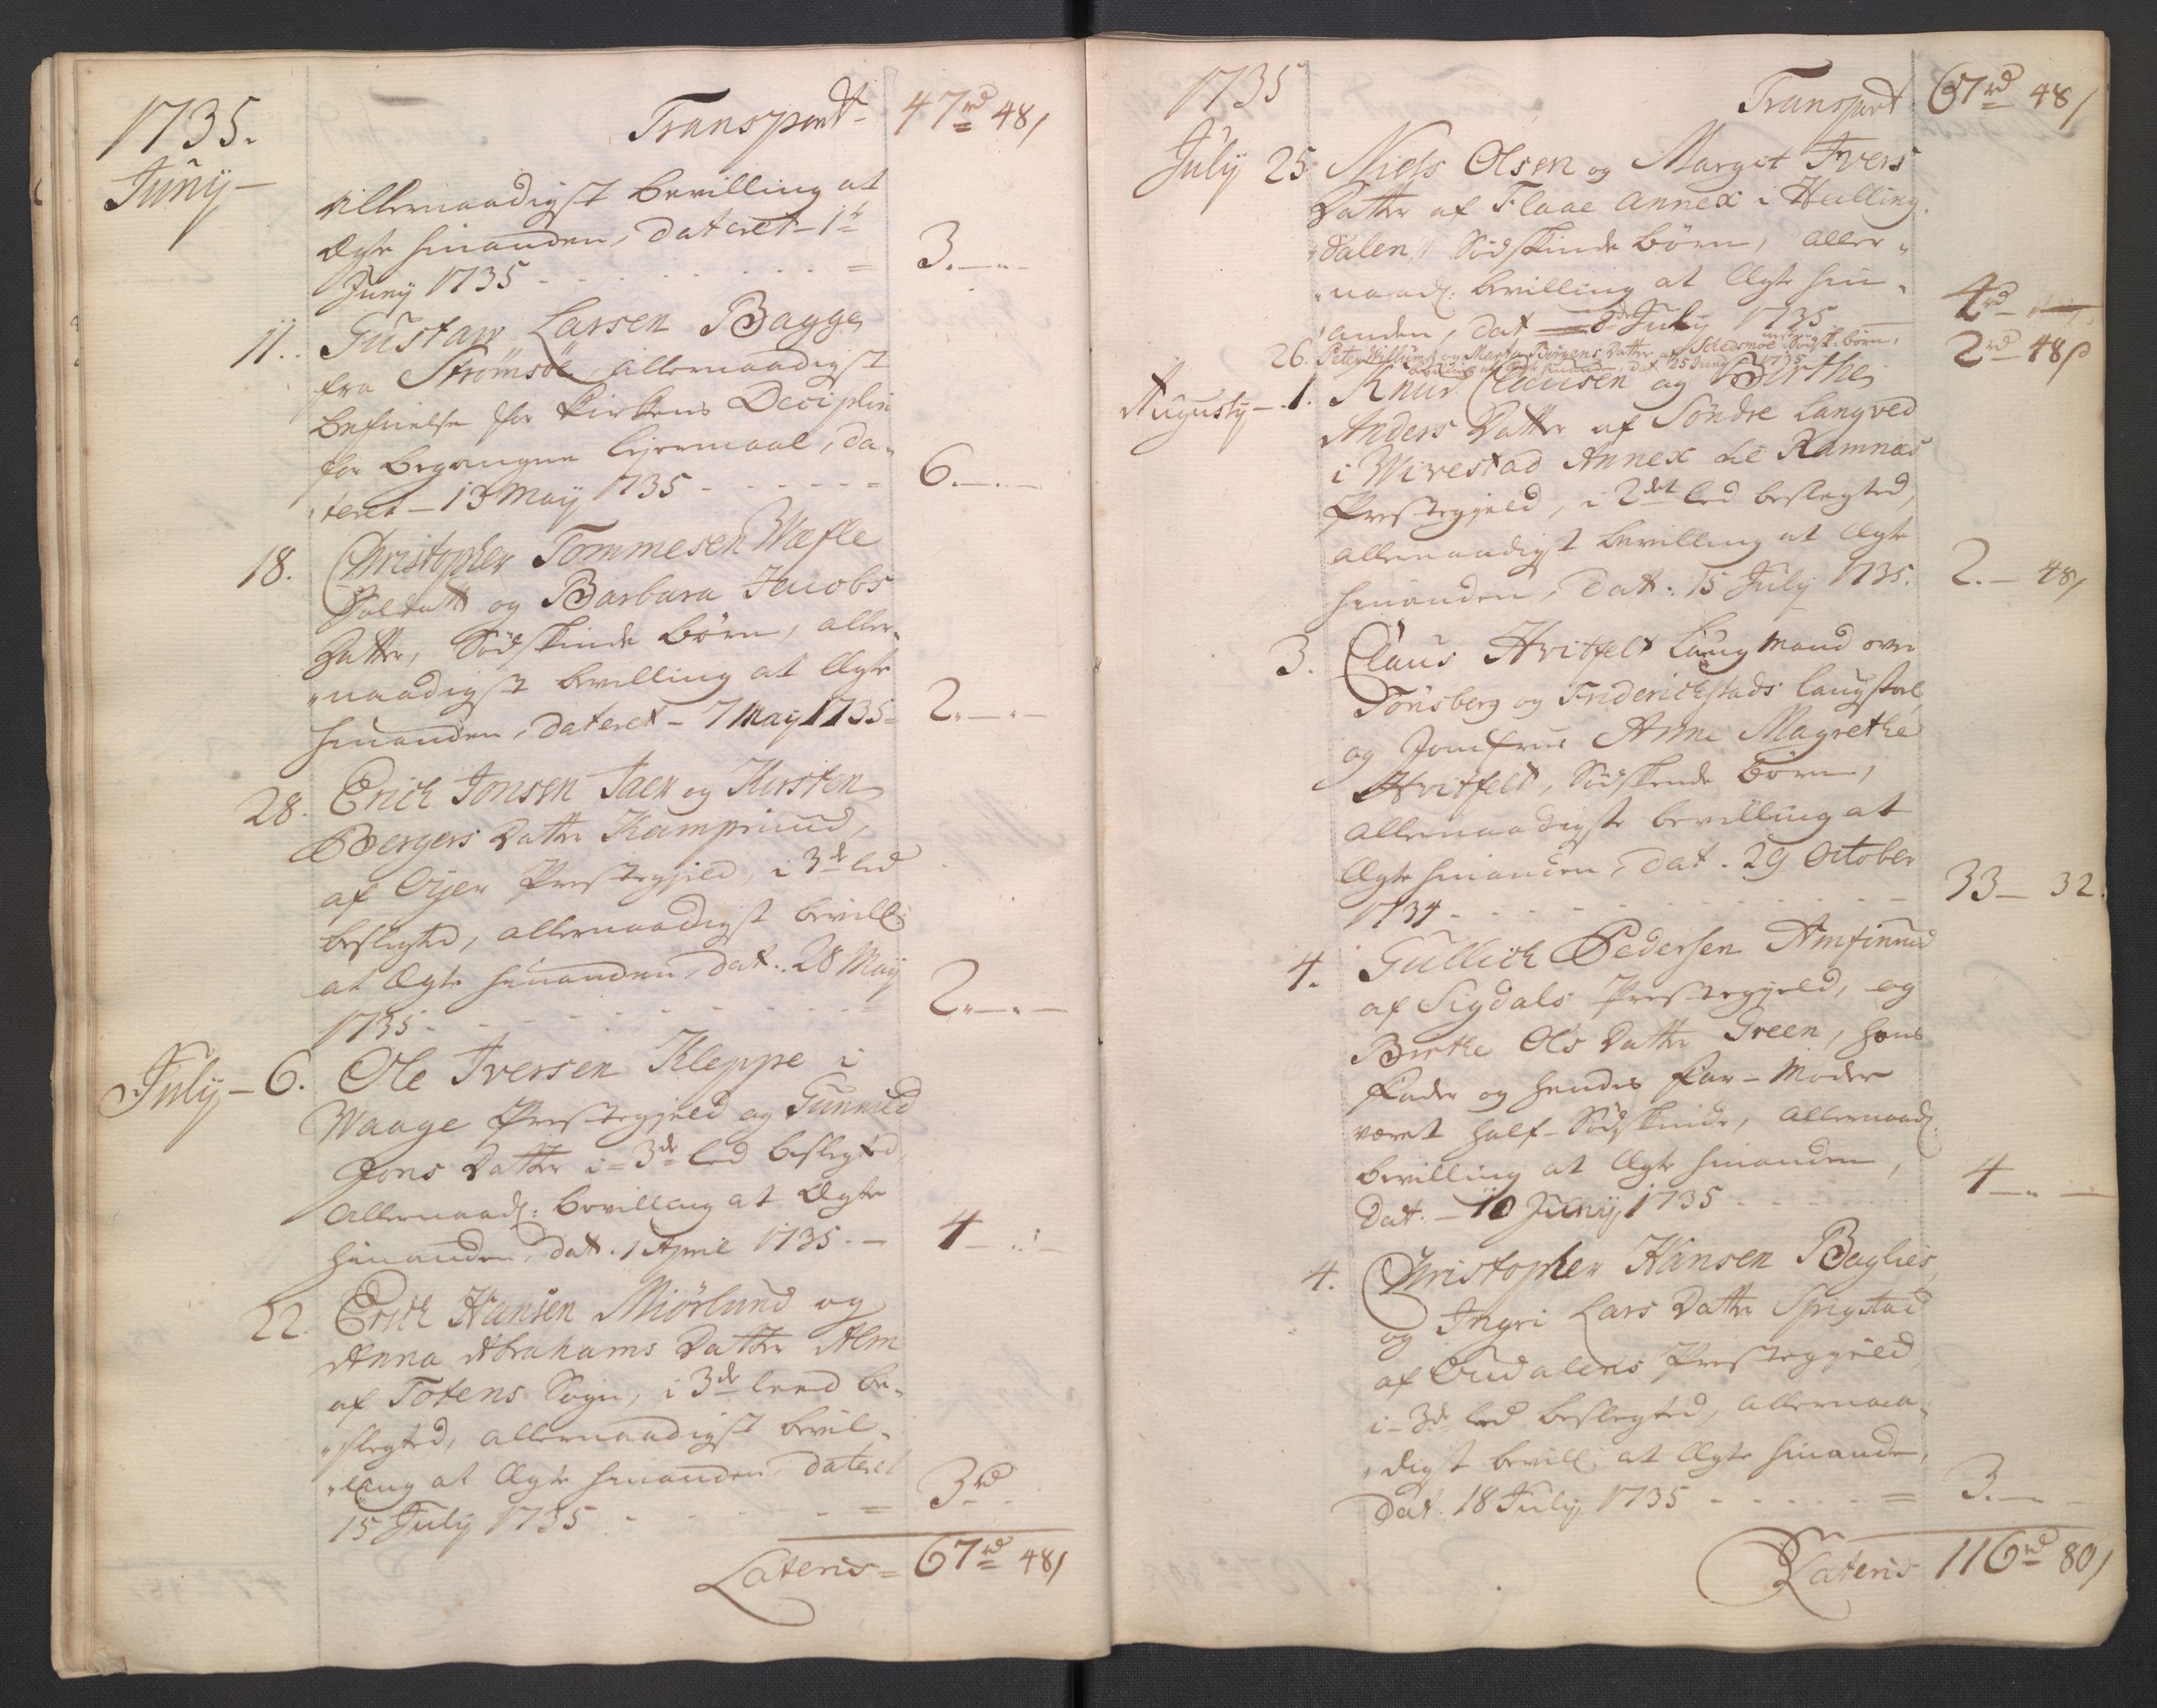 1735. Transport 47rd 48ſ
Junij
Allernaadigst bevilling at
Ægte hinanden, dateret 1te
Junij 1735 - - - 3. — -
11. Gustaw Larsen Bagge
fra Strömsöe, allernaadigst
befrielse for Kirkens Deciplin
for begangne leyermaal, da-
teret 13 Maij 1735 - - - 6. — -
18. Christopher Tommesen Wefle
Soldatt og Barbara Jacobs
Datter, Södskinde börn, aller-
naadigst bevilling at Ægte
hinanden, dateret - 7 Maij 1735 2. — -
28. Erich Jonsen Jaer og Kirsten
Bergers Datter Kamprud,
af Oÿer Præstegield, i 3de led
beslegted, allernaadigst bevill:
at Ægte hinanden, dat. 28 Maij
1735 - - - 2. — -
July - 6. Ole Iversen Kleppe i
Waage Præstegield og Gunnild
Jons Datter i 3de led beslegted,
Allernaad: bevilling at Ægte
hinanden, dat. 1 April 1735 - 4 — -
22. Erich Hansen Miörlund og
Anna Abrahams Datter Alm
af Totens Sogn, i 3de leed be-
slegted, allernaadigst bevil-
ling at Ægte hinanden dateret
15 July 1735 - - - 3rd
Lateris = 67rd 48ſ
1735 Transport 67rd 48ſ
July 25 Niels Olsen og Marget Ivers
Datter af Flaae Annex i Halling-
dalen, Södskinde börn, aller-
naad: bevilling at Ægte hin-
anden, dat 8de July 1735 4rd
26. Peter Willumsen og Marta Börgens Datter af Schedsmoe Södsk: börn, 2rd 48ſ
bevilling at Ægte hinanden, dat. 25 Junij 1735
Augustij - 1. Knud Clausen og Birthe
Anders Datter af Söndre Langved
i Wivestad Annex til Ramnæs
Præstegield, i 2det led beslegted,
allernaadigst bevilling at Ægte
hinanden, dat: 15 July 1735. 2. — 48ſ
3. Claus Hvitfelt Laugmand over
Tönsberg og Friderichstads laugstol,
og Jomfrue Anne Magrethe
Hvitfeldt, Södskende börn,
allernaadigste bevilling at
Ægte hinanden, dat. 29 October
1734 - - - 33 — 32.
4. Gullich Pedersen Amfinrud
af Sigdals Præstegield, og
Birthe Ols Datter Green, hans
Fader og hendes Far-Moder
været half-Södskinde, allernaad:
bevilling at Ægte hinanden,
dat. - 10 Junij 1735 - - - 4 — -
4. Christopher Hansen Baglies,
og Ingri Lars Datter Sprigstad
af Oudalens Præstegield
i 3de led beslegted, allernaa-
digst bevill: at Ægte hinanden,
dat. 18 July 1735 - - - 3. — -
Lateris 116rd 80ſ